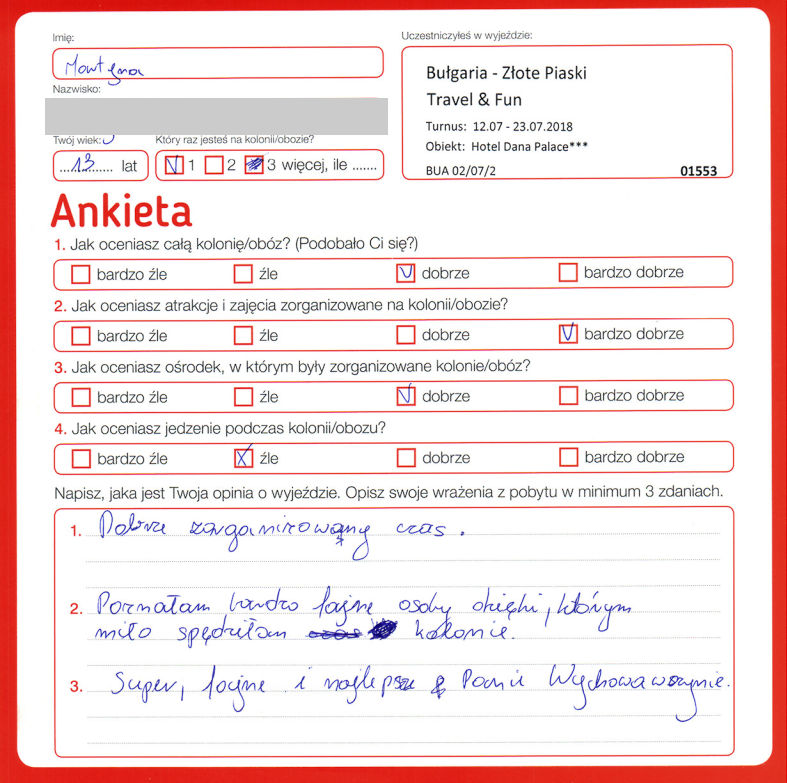 Imię:
Martyna
Nazwisko:
Twój wiek:
Który raz jesteś na kolonii/obozie?
....13....... lat
1 2 3 więcej, ile .......
Uczestniczyłeś w wyjeździe:
Bułgaria - Złote Piaski
Travel & Fun
Turnus: 12.07 - 23.07.2018
Obiekt: Hotel Dana Palace***
BUA 02/07/2 01553
Ankieta
1. Jak oceniasz całą kolonię/obóz? (Podobało Ci się?)
bardzo źle źle dobrze bardzo dobrze
2. Jak oceniasz atrakcje i zajęcia zorganizowane na kolonii/obozie?
bardzo źle źle dobrze bardzo dobrze
3. Jak oceniasz ośrodek, w którym były zorganizowane kolonie/obóz?
bardzo źle źle dobrze bardzo dobrze
4. Jak oceniasz jedzenie podczas kolonii/obozu?
bardzo źle źle dobrze bardzo dobrze
Napisz, jaka jest Twoja opinia o wyjeździe. Opisz swoje wrażenia z pobytu w minimum 3 zdaniach.
1. Dobrze zorganizowany czas.
2. Poznałam bardzo fajne osoby dzięki, którym
miło spędziłam kolonie.
3. Super, fajne i najlepsze Panie Wychowawczynie.